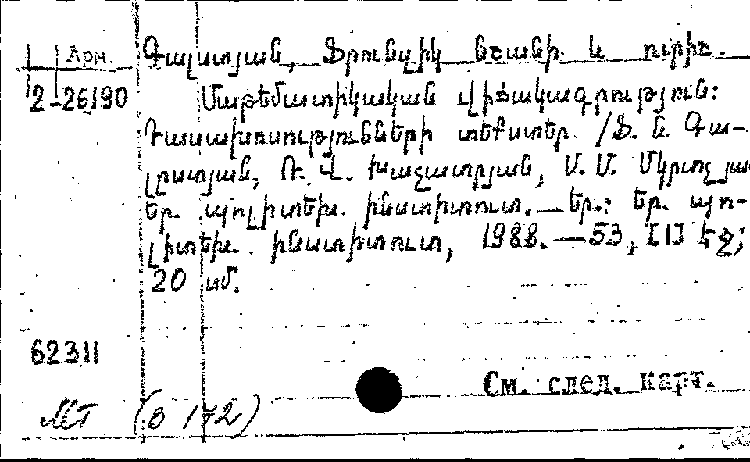 Арм. Գալստյան, Ֆրունզիկ Նշանի և ուրիշ.
2-26190 Մաթեմատիկական վիճակագրություն:
Դասախոսությունների տեքստեր /Ֆ. Ն. Գա-
լըստյան, Ռ. Վ. Խաչատրյան, Մ. Մ. Մկրտչյա
Եր. պոլիտեխ. ինստիտուտ.—Եր.: Եր. պո-
լիտեխ. ինստիտուտ, 1988.—53, [1] էջ;
20 սմ.
62311
См. след. карт.
МТ (В 172)